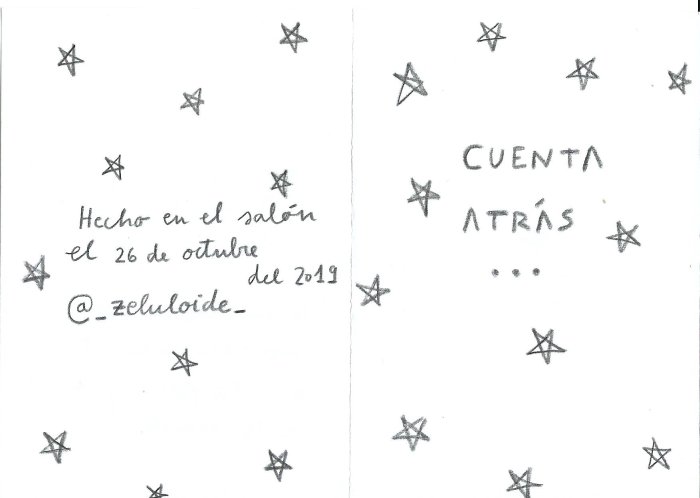 Hecho en el salón
el 26 de octubre
del 2019
@_zeluloide_
CUENTA
ATRÁS
...